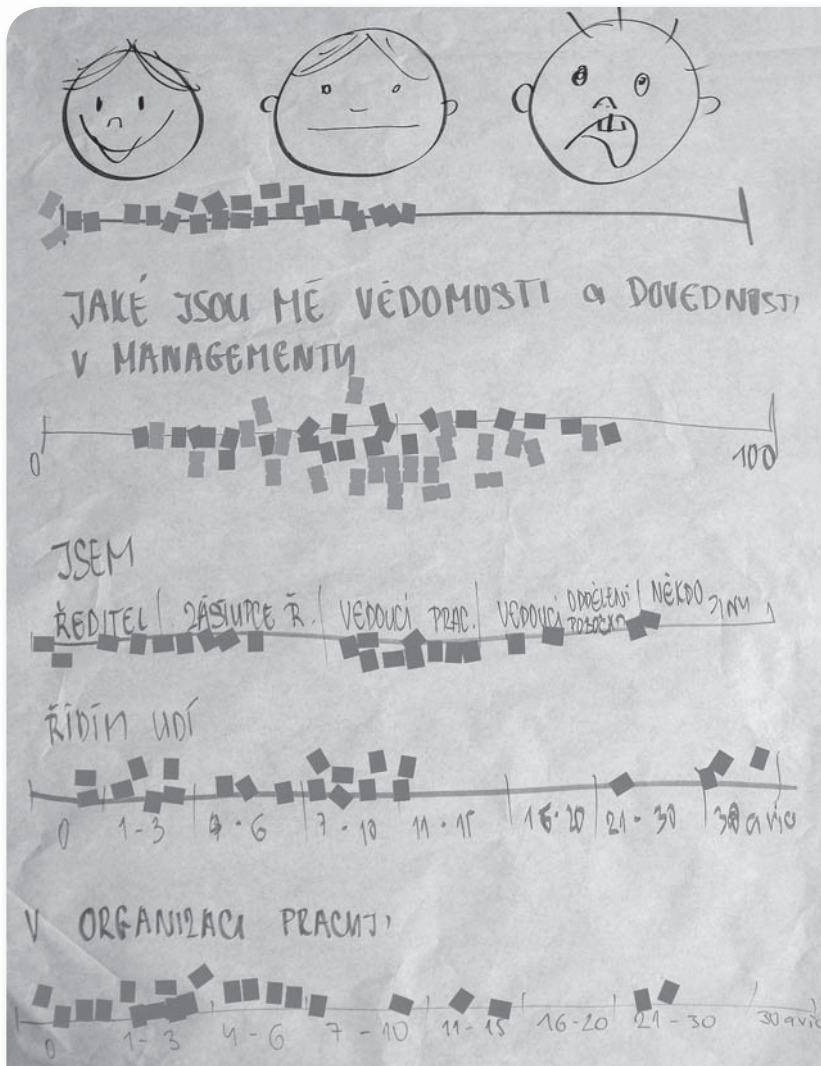 JAKÉ JSOU MÉ VĚDOMOSTI a DOVEDNOSTI
V MANAGEMENTU
0 100
JSEM
ŘEDITEL ZÁSTUPCE Ř. VEDOUCÍ PRAC. VEDOUCÍ ODDĚLENÍ NĚKDO JINÝ
ŘÍDÍM LIDÍ
0 1-3 4-6 7-10 11-15 16-20 21-30 30 a víc
V ORGANIZACI PRACUJI
0 1-3 4-6 7-10 11-15 16-20 21-30 30 a víc